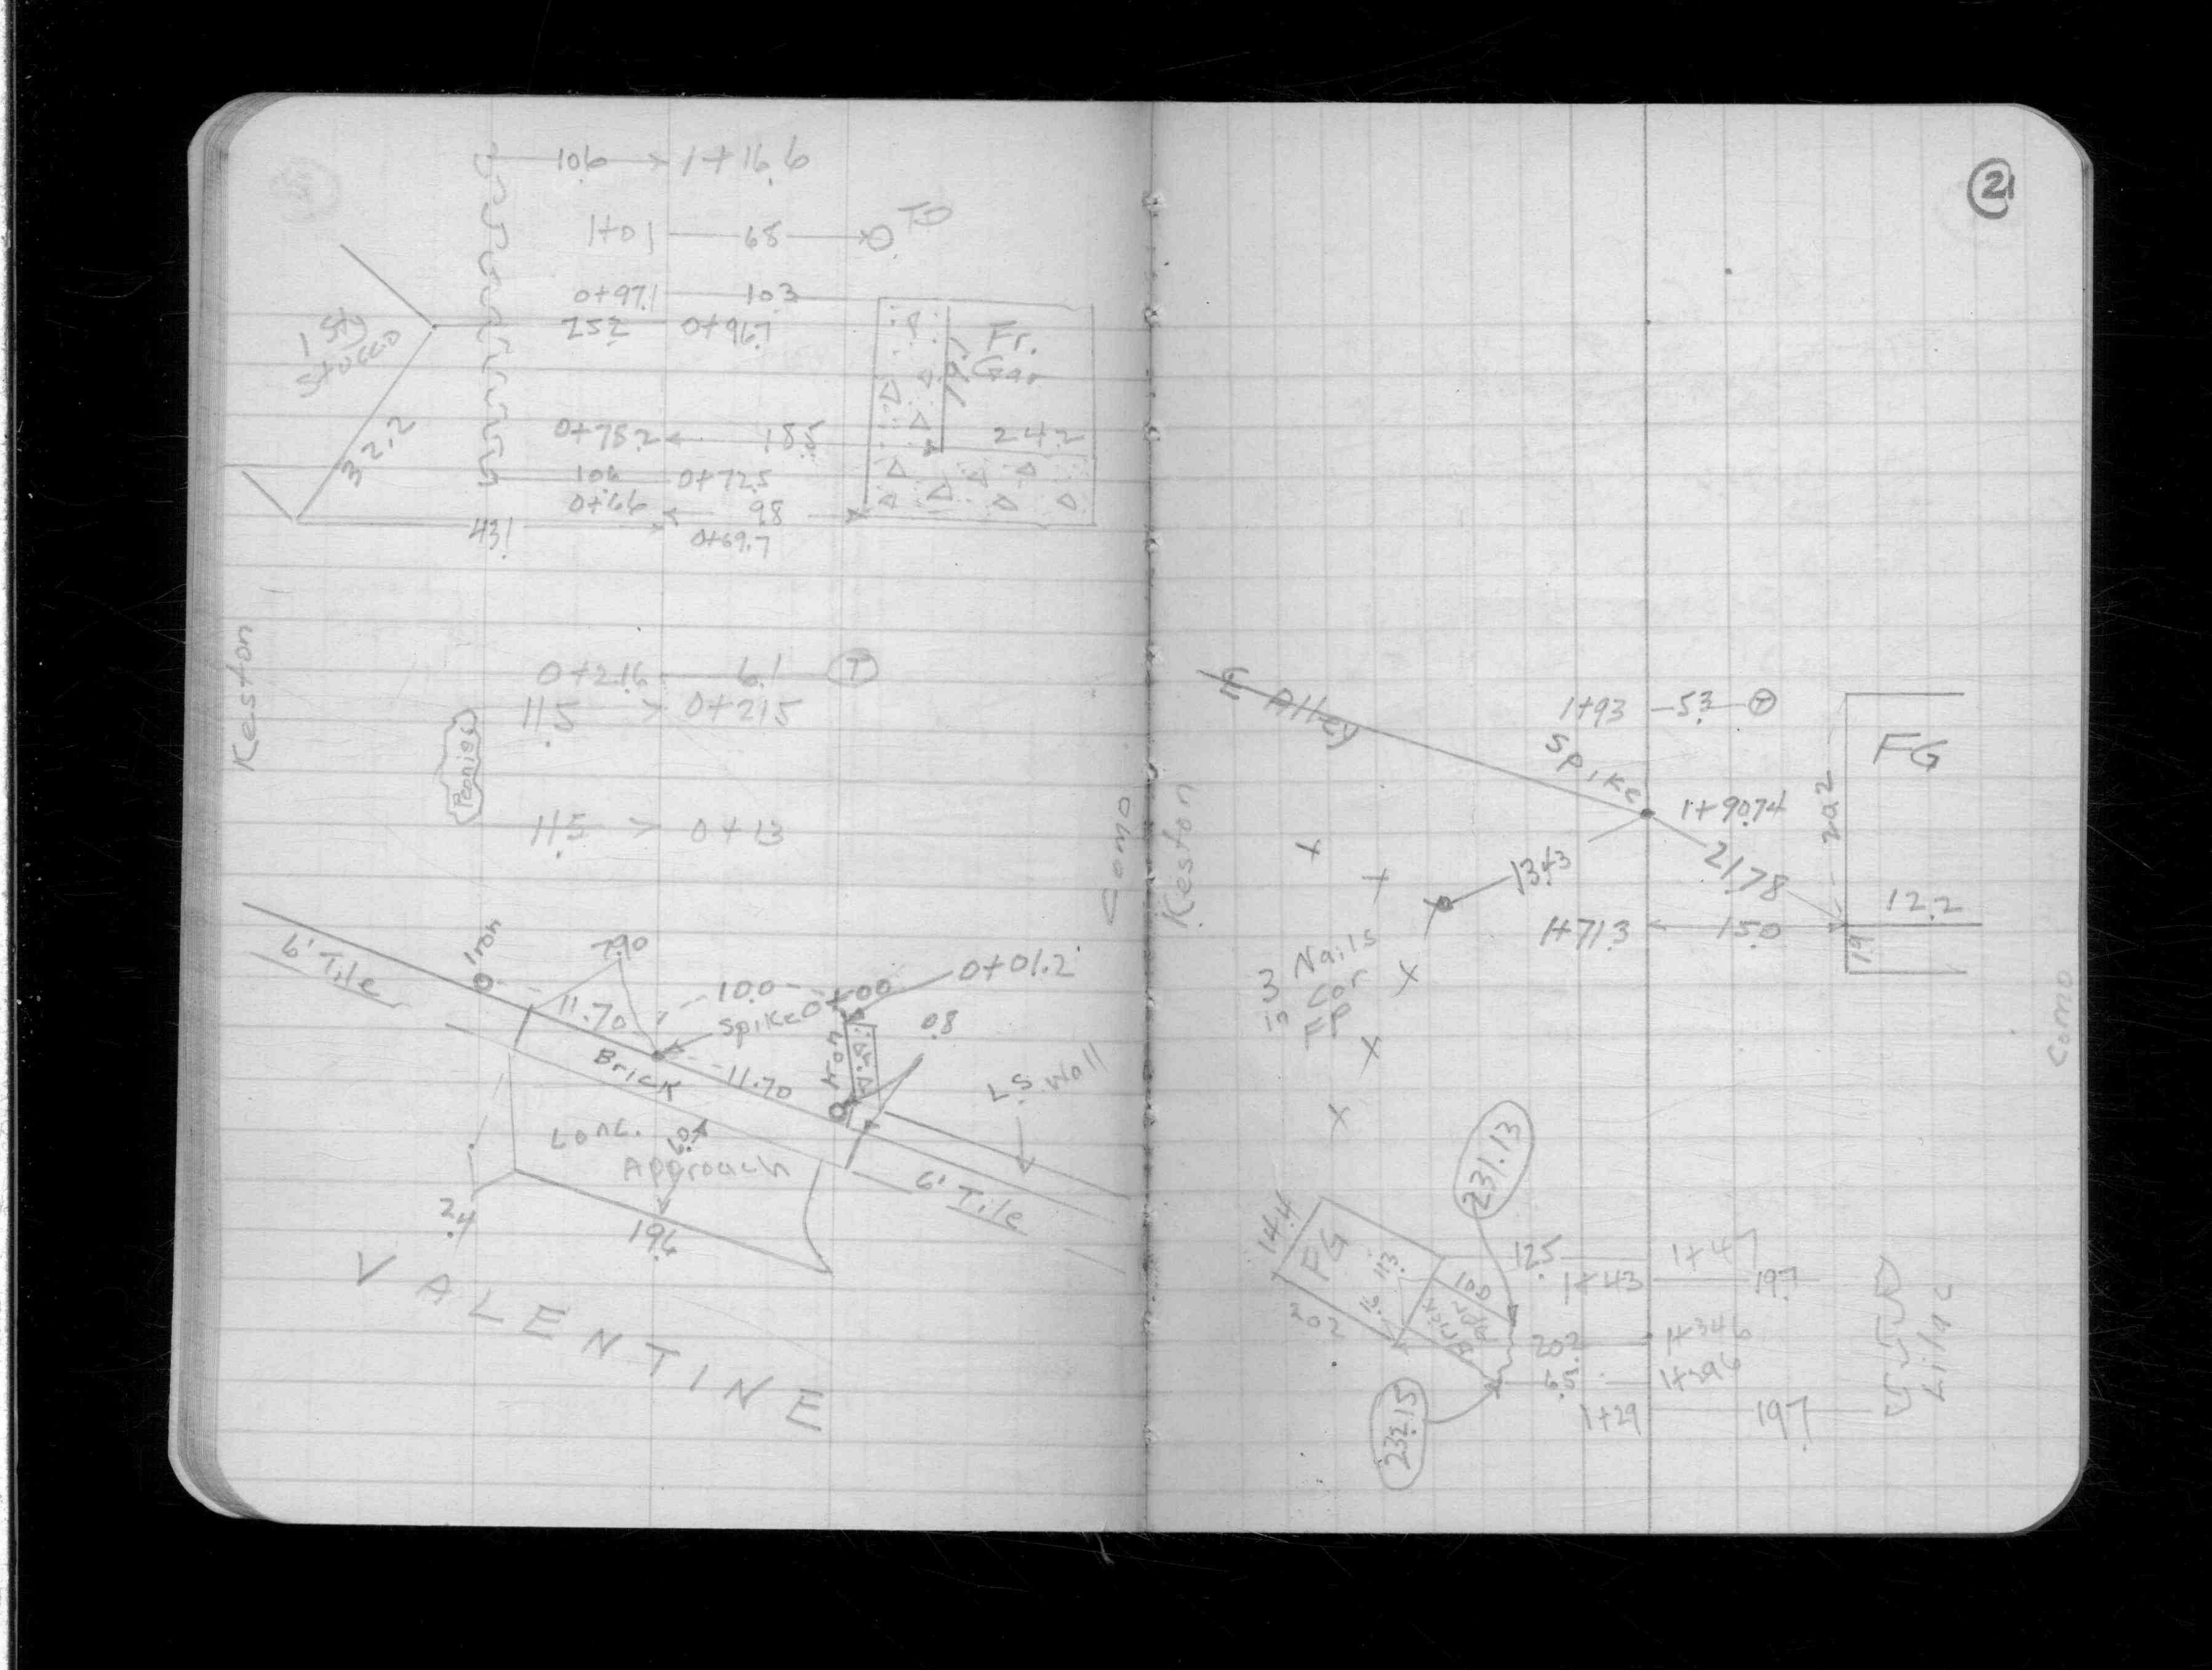 10.6 1+16.6
1+01 6.8
0+97.1 10.3
25.2 0+96.7
1 Sty
Stucco
Fr.
Gar
32.2
0+78.2 18.5
24.2
10.6 0+72.5
0+66 9.8
43.1 0+69.7
Keston
0+21.6 6.1 T
11.5 0+21.5
Peonies
11.5 0+13
Como
6' Tile
Iron
7.90
11.70
10.0
Spike 0+00
0+01.2
Iron
0.8
Brick
11.70
L.S. Wall
Conc.
Approach
6' Tile
2.4
19.6
VALENTINE
21
E Alley
1+93 5.3 T
Spike
1+90.74
FG
20.2
13.43
21.78
12.2
1+71.3 15.0
1.9
Keston
3 Nails
in Cor
FP
Como
231.13
14.4
FG
20.2
1.6 11.3
10.0
Brick
12.5 1+47
1+43 19.7
20.2 1+34.6
1+29.6
1+29 19.7
Lilac
232.15